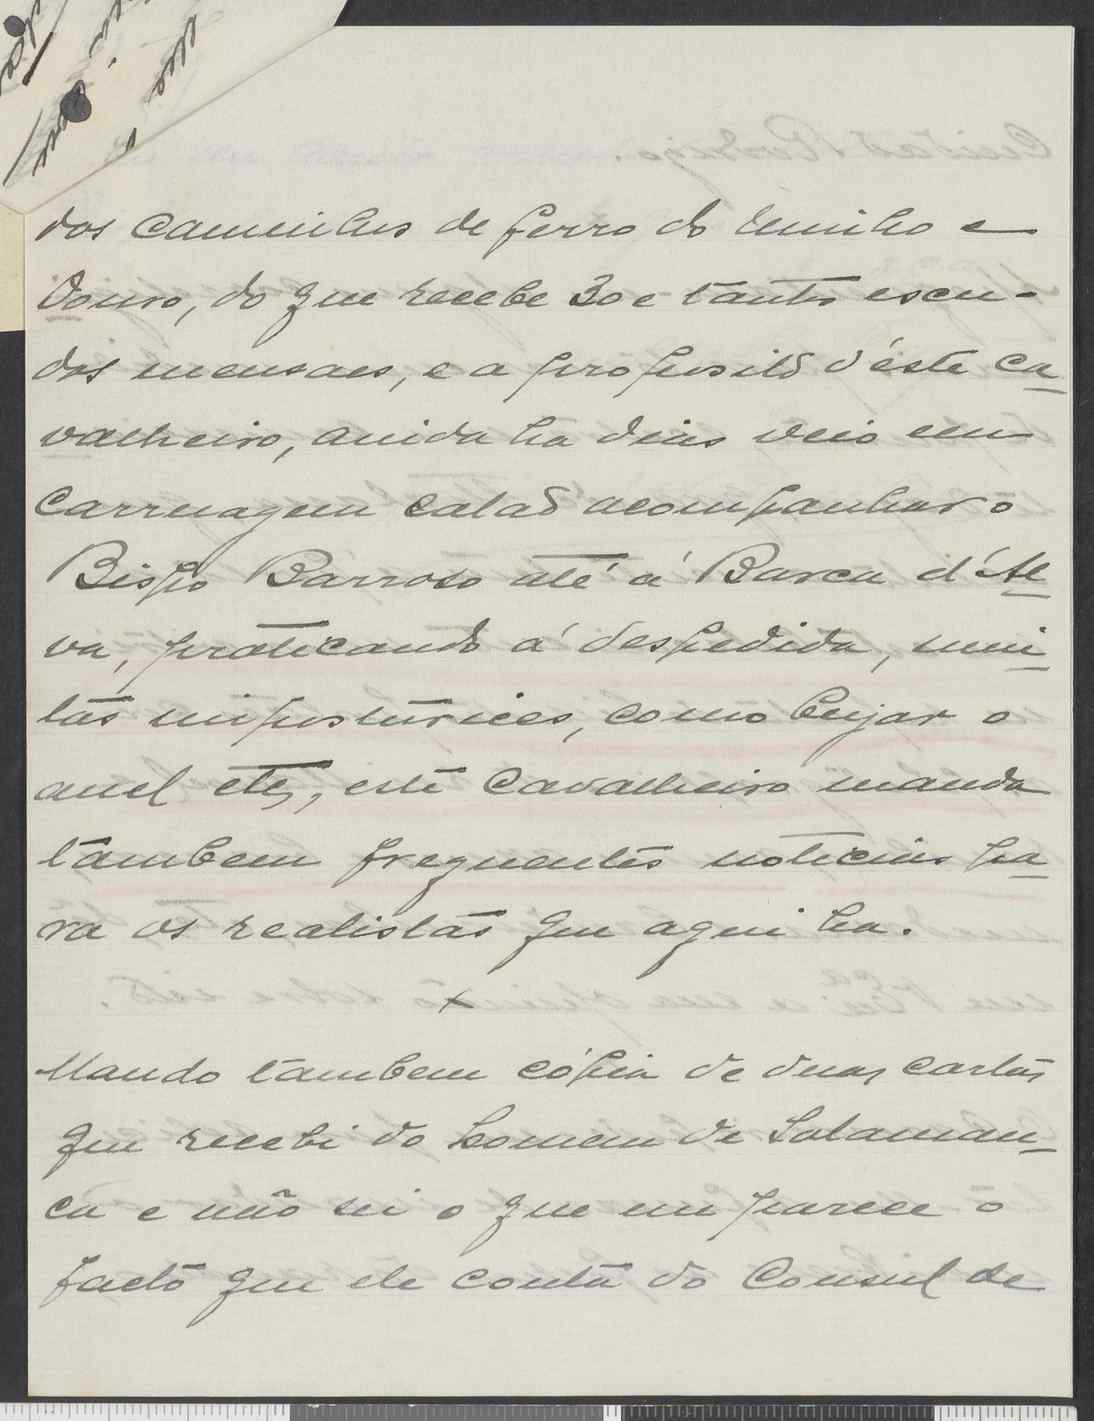 dos caminhos de ferro do Minho e
Douro, do que recebe 30 e tantos escu-
dos mensaes, e a proposito d'éste ca-
valheiro, ainda ha dias veio em
carruagem salaõ acompanhar o
Bispo Barroso até á Barca d'Al-
va, praticando á despedida, mui-
tas impusturices, como beijar o
anel etc, este cavalheiro manda
tambem frequentes noticias pa-
ra os realistas que aqui ha.
x
Mando tambem cópia de duas cartas
que recebi do homem de Salaman-
ca e não sei o que me parece o
facto que ele conta do Consul de